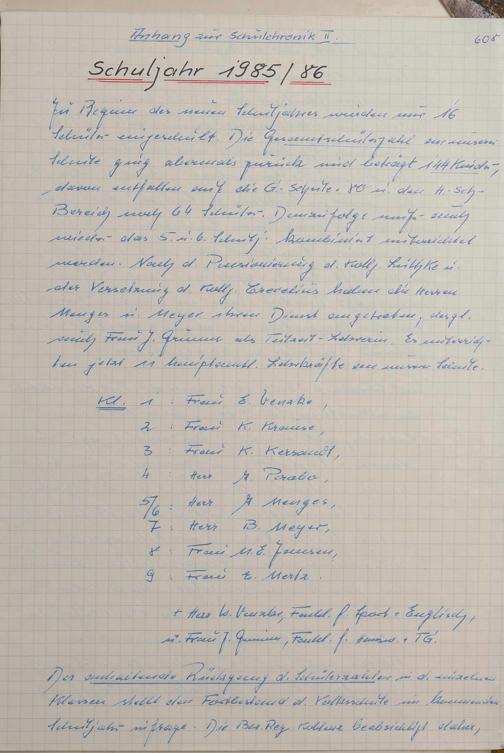 Anhang zur Schulchronik II.
605
Schuljahr 1985/86
Zu Beginn des neuen Schuljahres wurden nur 16
Schüler eingeschult. Die Gesamtschülerzahl an unserer
Schule ging abermals zurück und beträgt 144 Kinder,
davon entfallen auf die G.-Schule 80 u. den H.-Sch-
Bereich noch 64 Schüler. Demzufolge muß auch
wieder das 5. u. 6. Schulj. kombiniert unterrichtet
werden. Nach d. Pensionierung d. Koll. u.
der Versetzung d. Koll. haben die Herren
Menges u. Meyer ihren Dienst angetreten, desgl.
auch Frau J. Grumm als Teilzeit-Lehrerin. Es unterrich-
ten jetzt 11 hauptamtl. Lehrkräfte an unserer Schule.
Kl. 1 : Frau E. Venzke,
2 : Frau K. Krause,
3 : Frau K. Kersandt,
4 : Herr
5/6 : Herr Menges,
7 : Herr B. Meyer,
8 : Frau M. E. Jansen,
9 : Frau E. Mertz.
+ Herr W. Venzke, Fachl. f. Sport + Englisch,
u. Frau J. Grumm, Fachl. f. + TG.
Der anhaltende Rückgang d. Schülerzahlen in d. einzelnen
Klassen stellt den Fortbestand d. Volksschule im kommenden
Schuljahr infrage. Die Bez. Reg. Koblenz beabsichtigt daher,